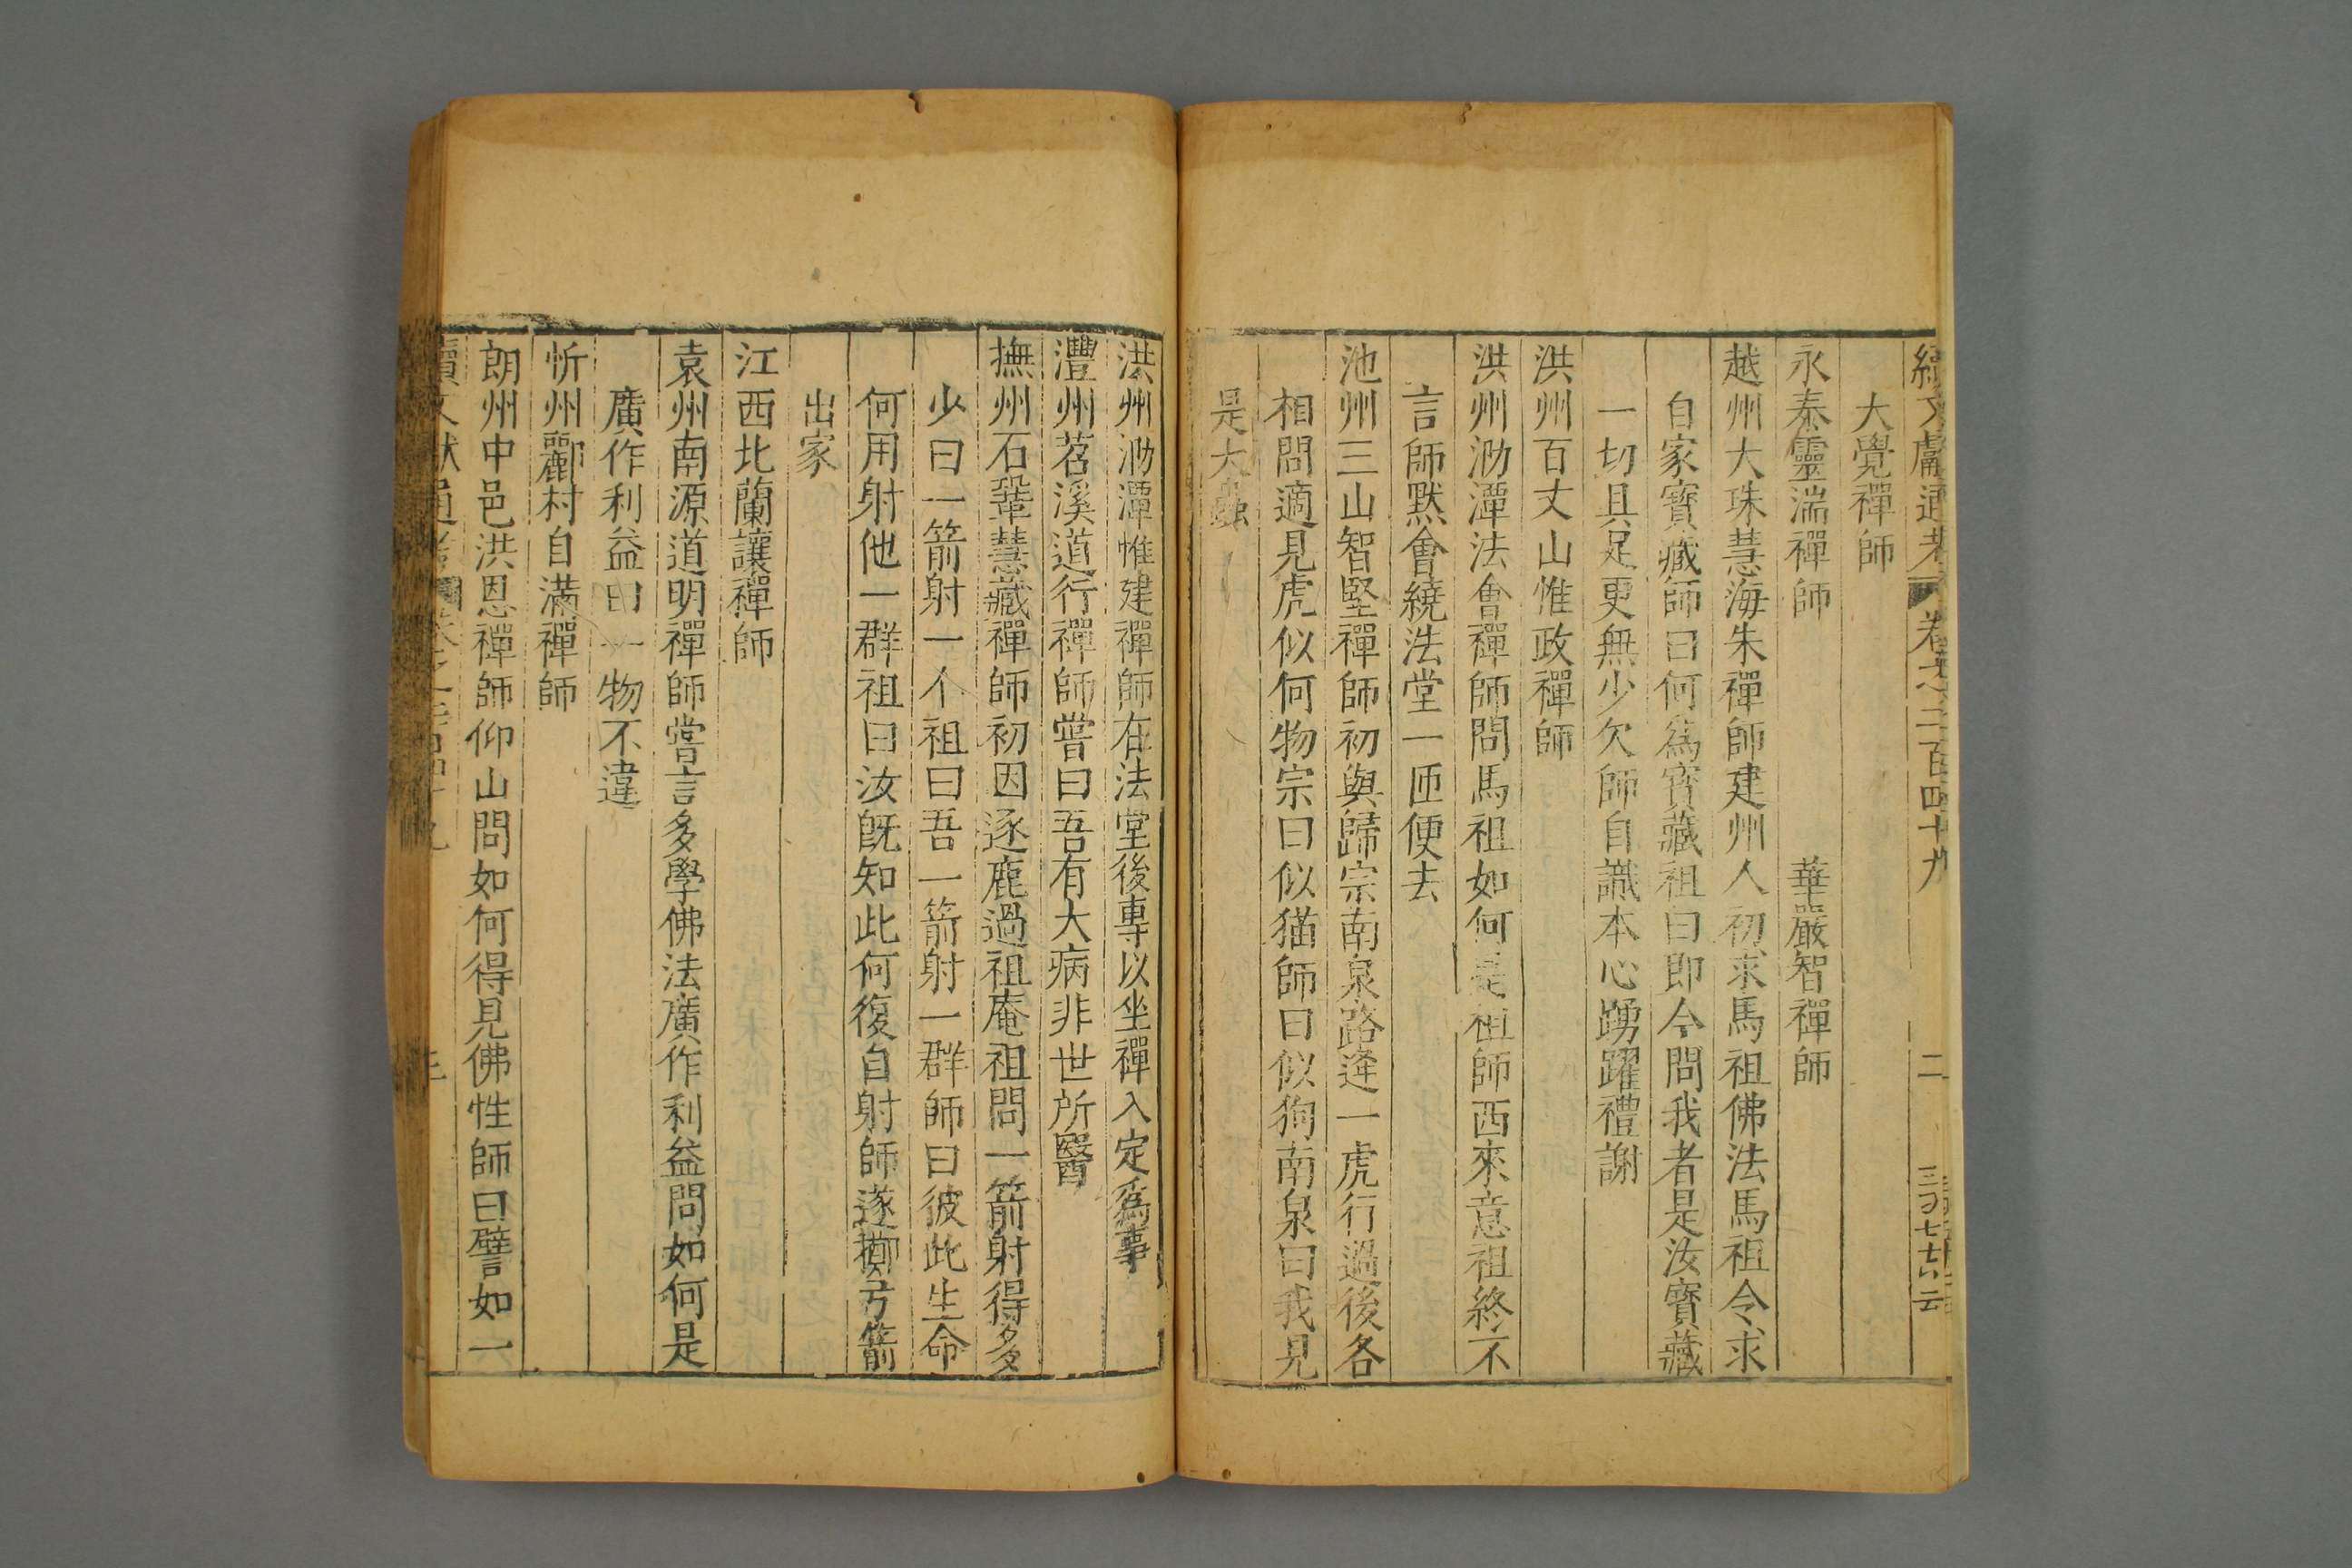 續文獻通考 卷之二百四十九 二
大覺禪師
永泰靈湍禪師 華嚴智禪師
越州大珠慧海朱禪師建州人初求馬祖佛法馬祖令求
自家寳藏師曰何爲寳藏祖曰即今問我者是汝寳藏
一切具足更無少欠師自識本心踴躍禮謝
洪州百丈山惟政禪師
洪州泐潭法會禪師問馬祖如何是祖師西來意祖終不
言師黙會繞法堂一匝便去
池州三山智堅禪師初與歸宗南泉路逢一虎行過後各
相問適見虎似何物宗曰似猫師曰似狗南泉曰我見
是大蟲
洪州泐潭惟建禪師在法堂後專以坐禪入定爲事
灃州茗溪道行禪師嘗曰吾有大病非世所醫
撫州石鞏慧藏禪師初因逐鹿過祖庵祖問一箭射得多
少曰一箭射一个祖曰吾一箭射一群師曰彼此生命
何用射他一群祖曰汝旣知此何復自射師遂擲弓箭
出家
江西北蘭讓禪師
袁州南源道明禪師嘗言多學佛法廣作利益問如何是
廣作利益曰一物不違
忻州酈村自滿禪師
朗州中邑洪恩禪師仰山問如何得見佛性師曰譬如一
續文獻通考